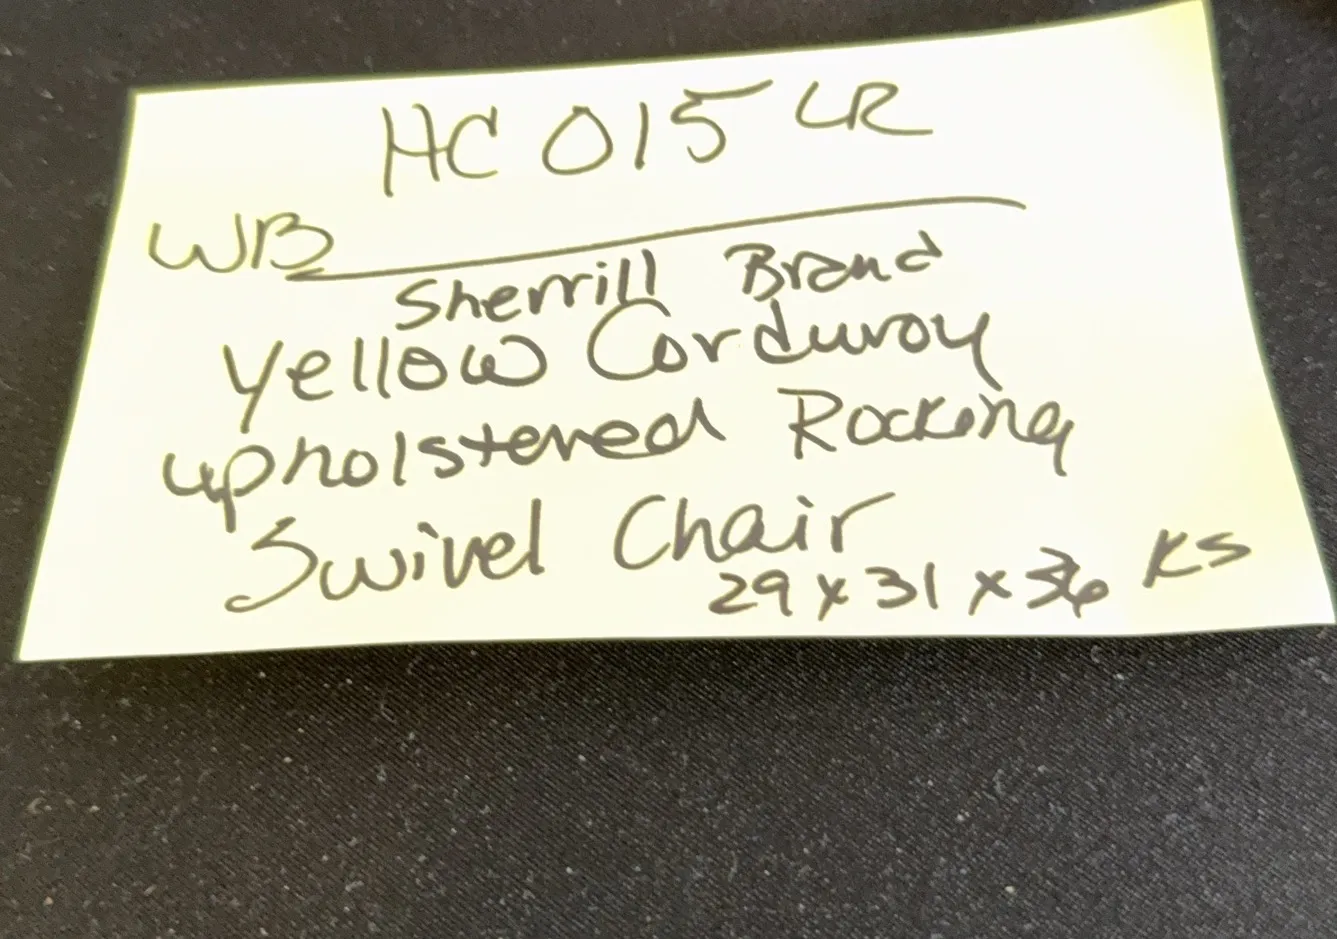 HC 015 LR
WB
Sherrill Brand
Yellow Corduroy
upholstered Rocking
Swivel Chair
29 x 31 x 36 KS